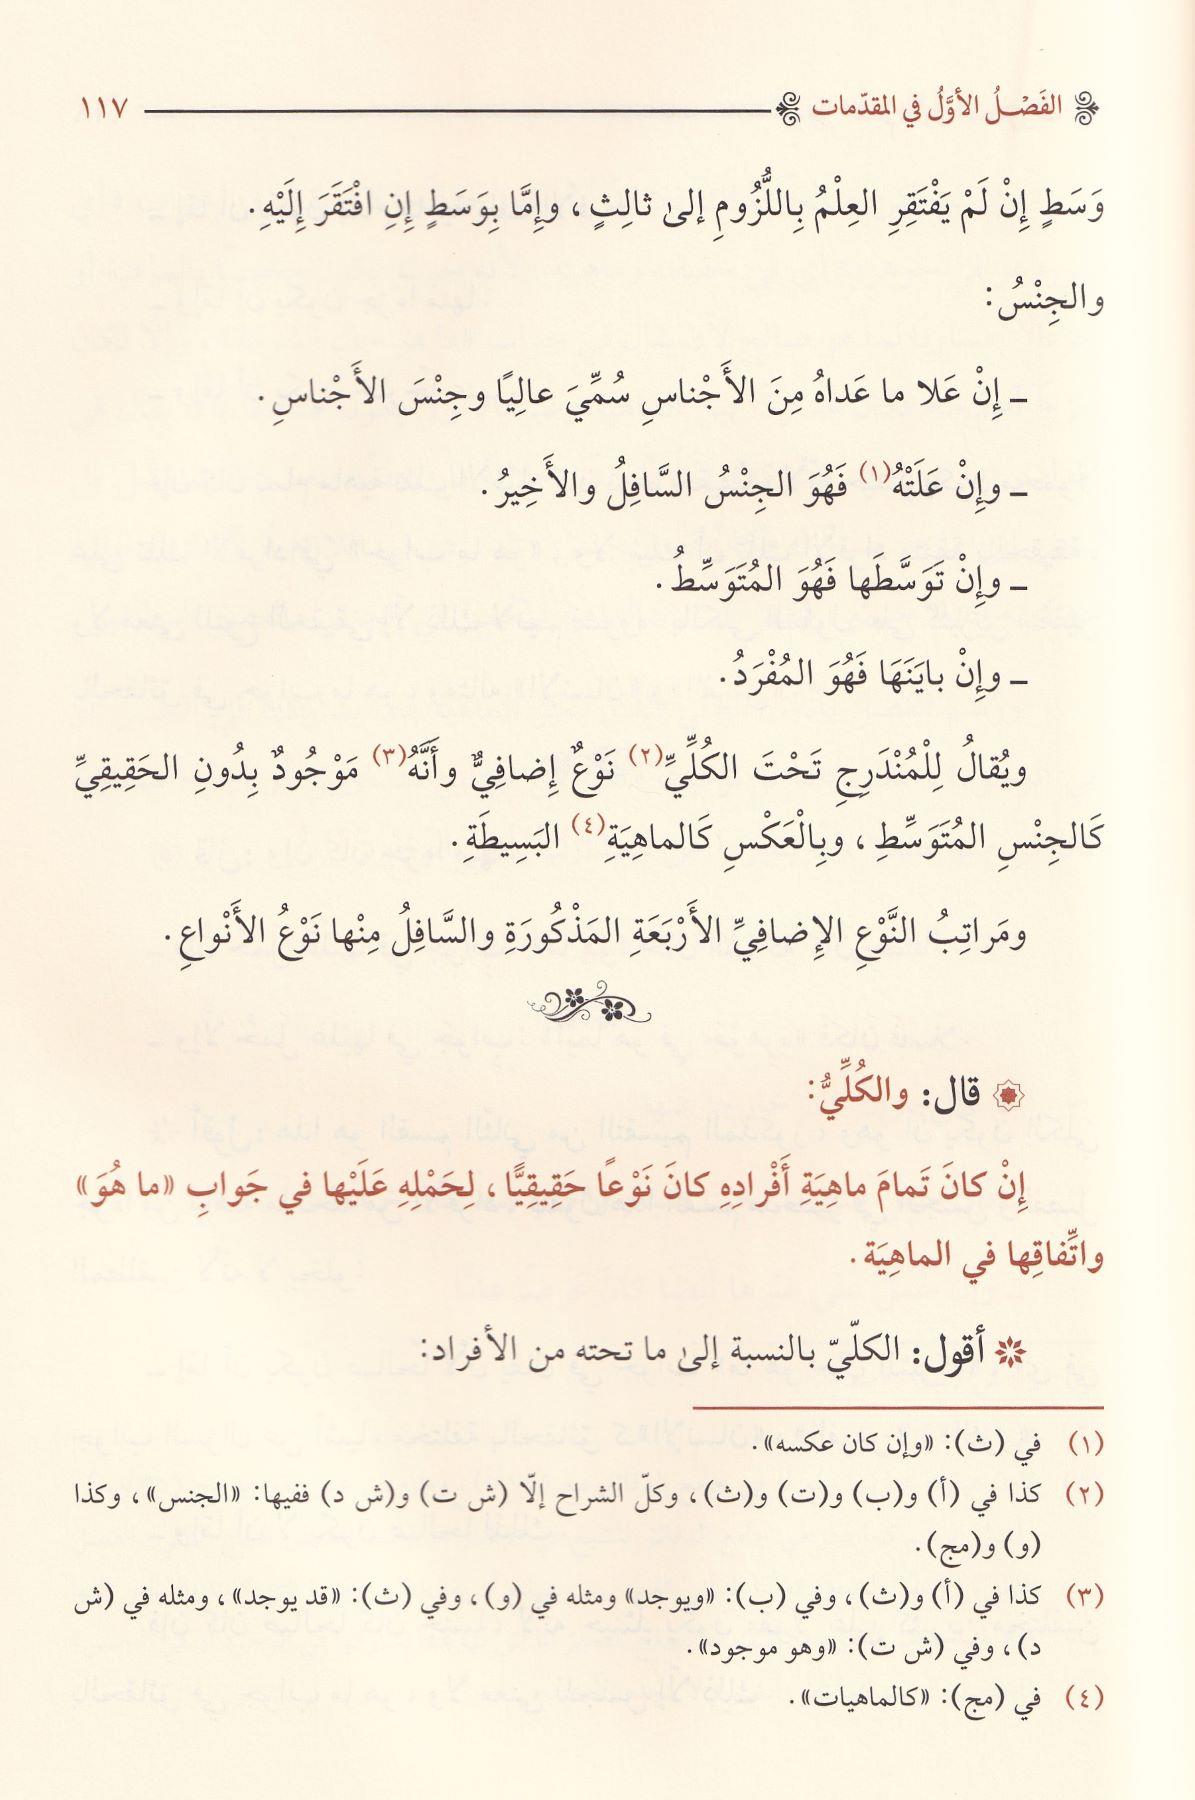 الفَصْلُ الأوَّلُ في المقدّمات ١١٧
وَسَطٍ إِنْ لَمْ يَفْتَقِرِ العِلْمُ بِاللُّزُومِ إلىٰ ثالِثٍ، وإِمَّا بِوَسَطٍ إِنِ افْتَقَرَ إِلَيْهِ.
والجِنْسُ:
ـ إِنْ عَلا ما عَداهُ مِنَ الأَجْناسِ سُمِّيَ عالِيًا وجِنْسَ الأَجْناسِ.
ـ وإِنْ عَلَتْهُ(١) فَهُوَ الجِنْسُ السَّافِلُ والأَخِيرُ.
ـ وإِنْ تَوَسَّطَها فَهُوَ المُتَوَسِّطُ.
ـ وإِنْ بايَنَهَا فَهُوَ المُفْرَدُ.
ويُقالُ لِلْمُنْدَرِجِ تَحْتَ الكُلِّيِّ(٢) نَوْعٌ إِضافِيٌّ وأَنَّهُ(٣) مَوْجُودٌ بِدُونِ الحَقِيقِيِّ
كَالجِنْسِ المُتَوَسِّطِ، وبِالْعَكْسِ كَالماهِيَةِ(٤) البَسِيطَةِ.
ومَراتِبُ النَّوْعِ الإِضافِيِّ الأَرْبَعَةِ المَذْكُورَةِ والسَّافِلُ مِنْها نَوْعُ الأَنْواعِ.
قال: والكُلِّيُّ:
إِنْ كانَ تَمامَ ماهِيَةِ أَفْرادِهِ كانَ نَوْعًا حَقِيقِيًّا، لِحَمْلِهِ عَلَيْها في جَوابِ «ما هُوَ»
واتِّفاقِها في الماهِيَة.
أقول: الكلّيّ بالنسبة إلىٰ ما تحته من الأفراد:
(١) في (ث): «وإن كان عكسه».
(٢) كذا في (أ) و(ب) و(ت) و(ث)، وكلّ الشراح إلّا (ش ت) و(ش د) ففيها: «الجنس»، وكذا
(و) و(مج).
(٣) كذا في (أ) و(ث)، وفي (ب): «ويوجد» ومثله في (و)، وفي (ث): «قد يوجد»، ومثله في (ش
د)، وفي (ش ت): «وهو موجود».
(٤) في (مج): «كالماهيات».